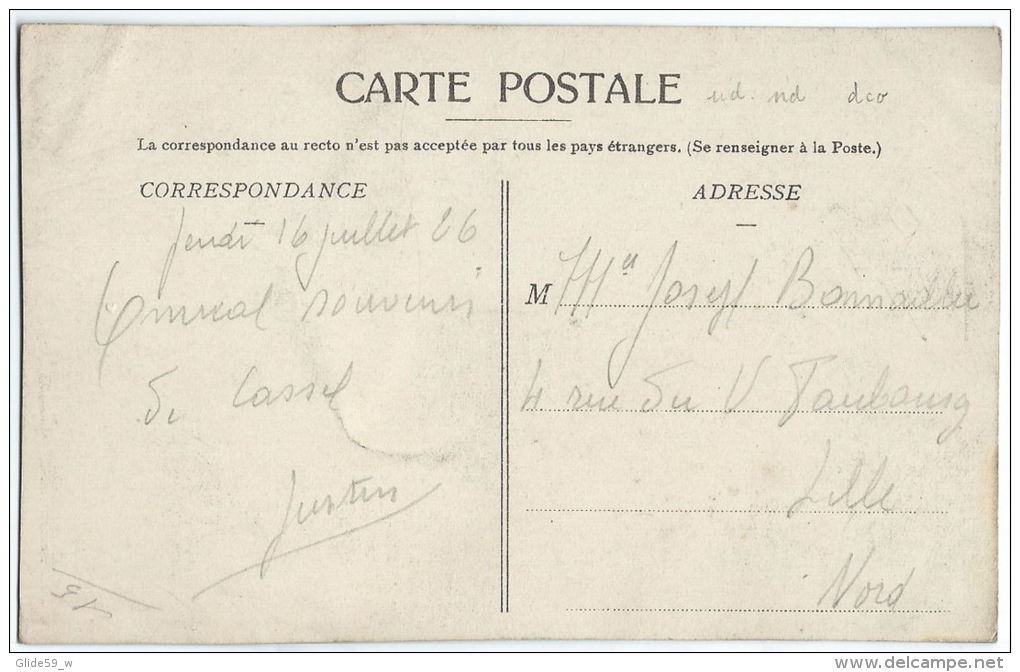 CARTE POSTALE nd. nd dco
La correspondance au recto n'est pas acceptée par tous les pays étrangers. (Se renseigner à la Poste.)
CORRESPONDANCE
Jeudi 16 juillet 26
Amical souvenir
de Cassel
Justin
ADRESSE
M Joseph
4 rue du V Faubourg
Lille
Nord
Glide59_w
www.delcampe.net